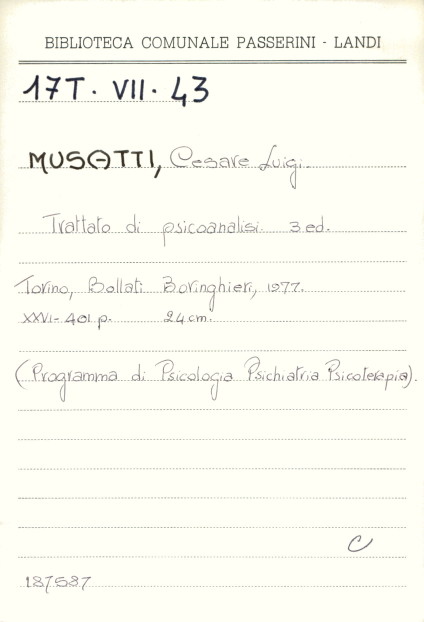 BIBLIOTECA COMUNALE PASSERINI - LANDI
17T. VII. 43
MUSATTI, Cesare Luigi.
Trattato di psicoanalisi. 3 ed.
Torino, Bollati Boringhieri, 1977.
XXVI-401 p. 24 cm.
(Programma di Psicologia Psichiatria Psicoterapia).
C
187587